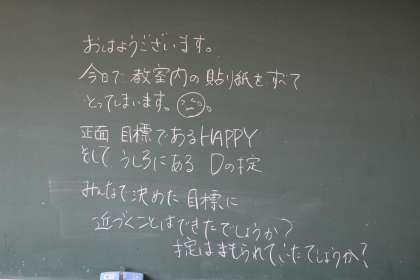 おはようございます。
今日で教室内の貼り紙をすべて
とってしまいます。
正面 目標であるHAPPY
そして うしろにある Dの掟
みんなで決めた目標に
近づくことはできたでしょうか?
掟はまもられていたでしょうか?